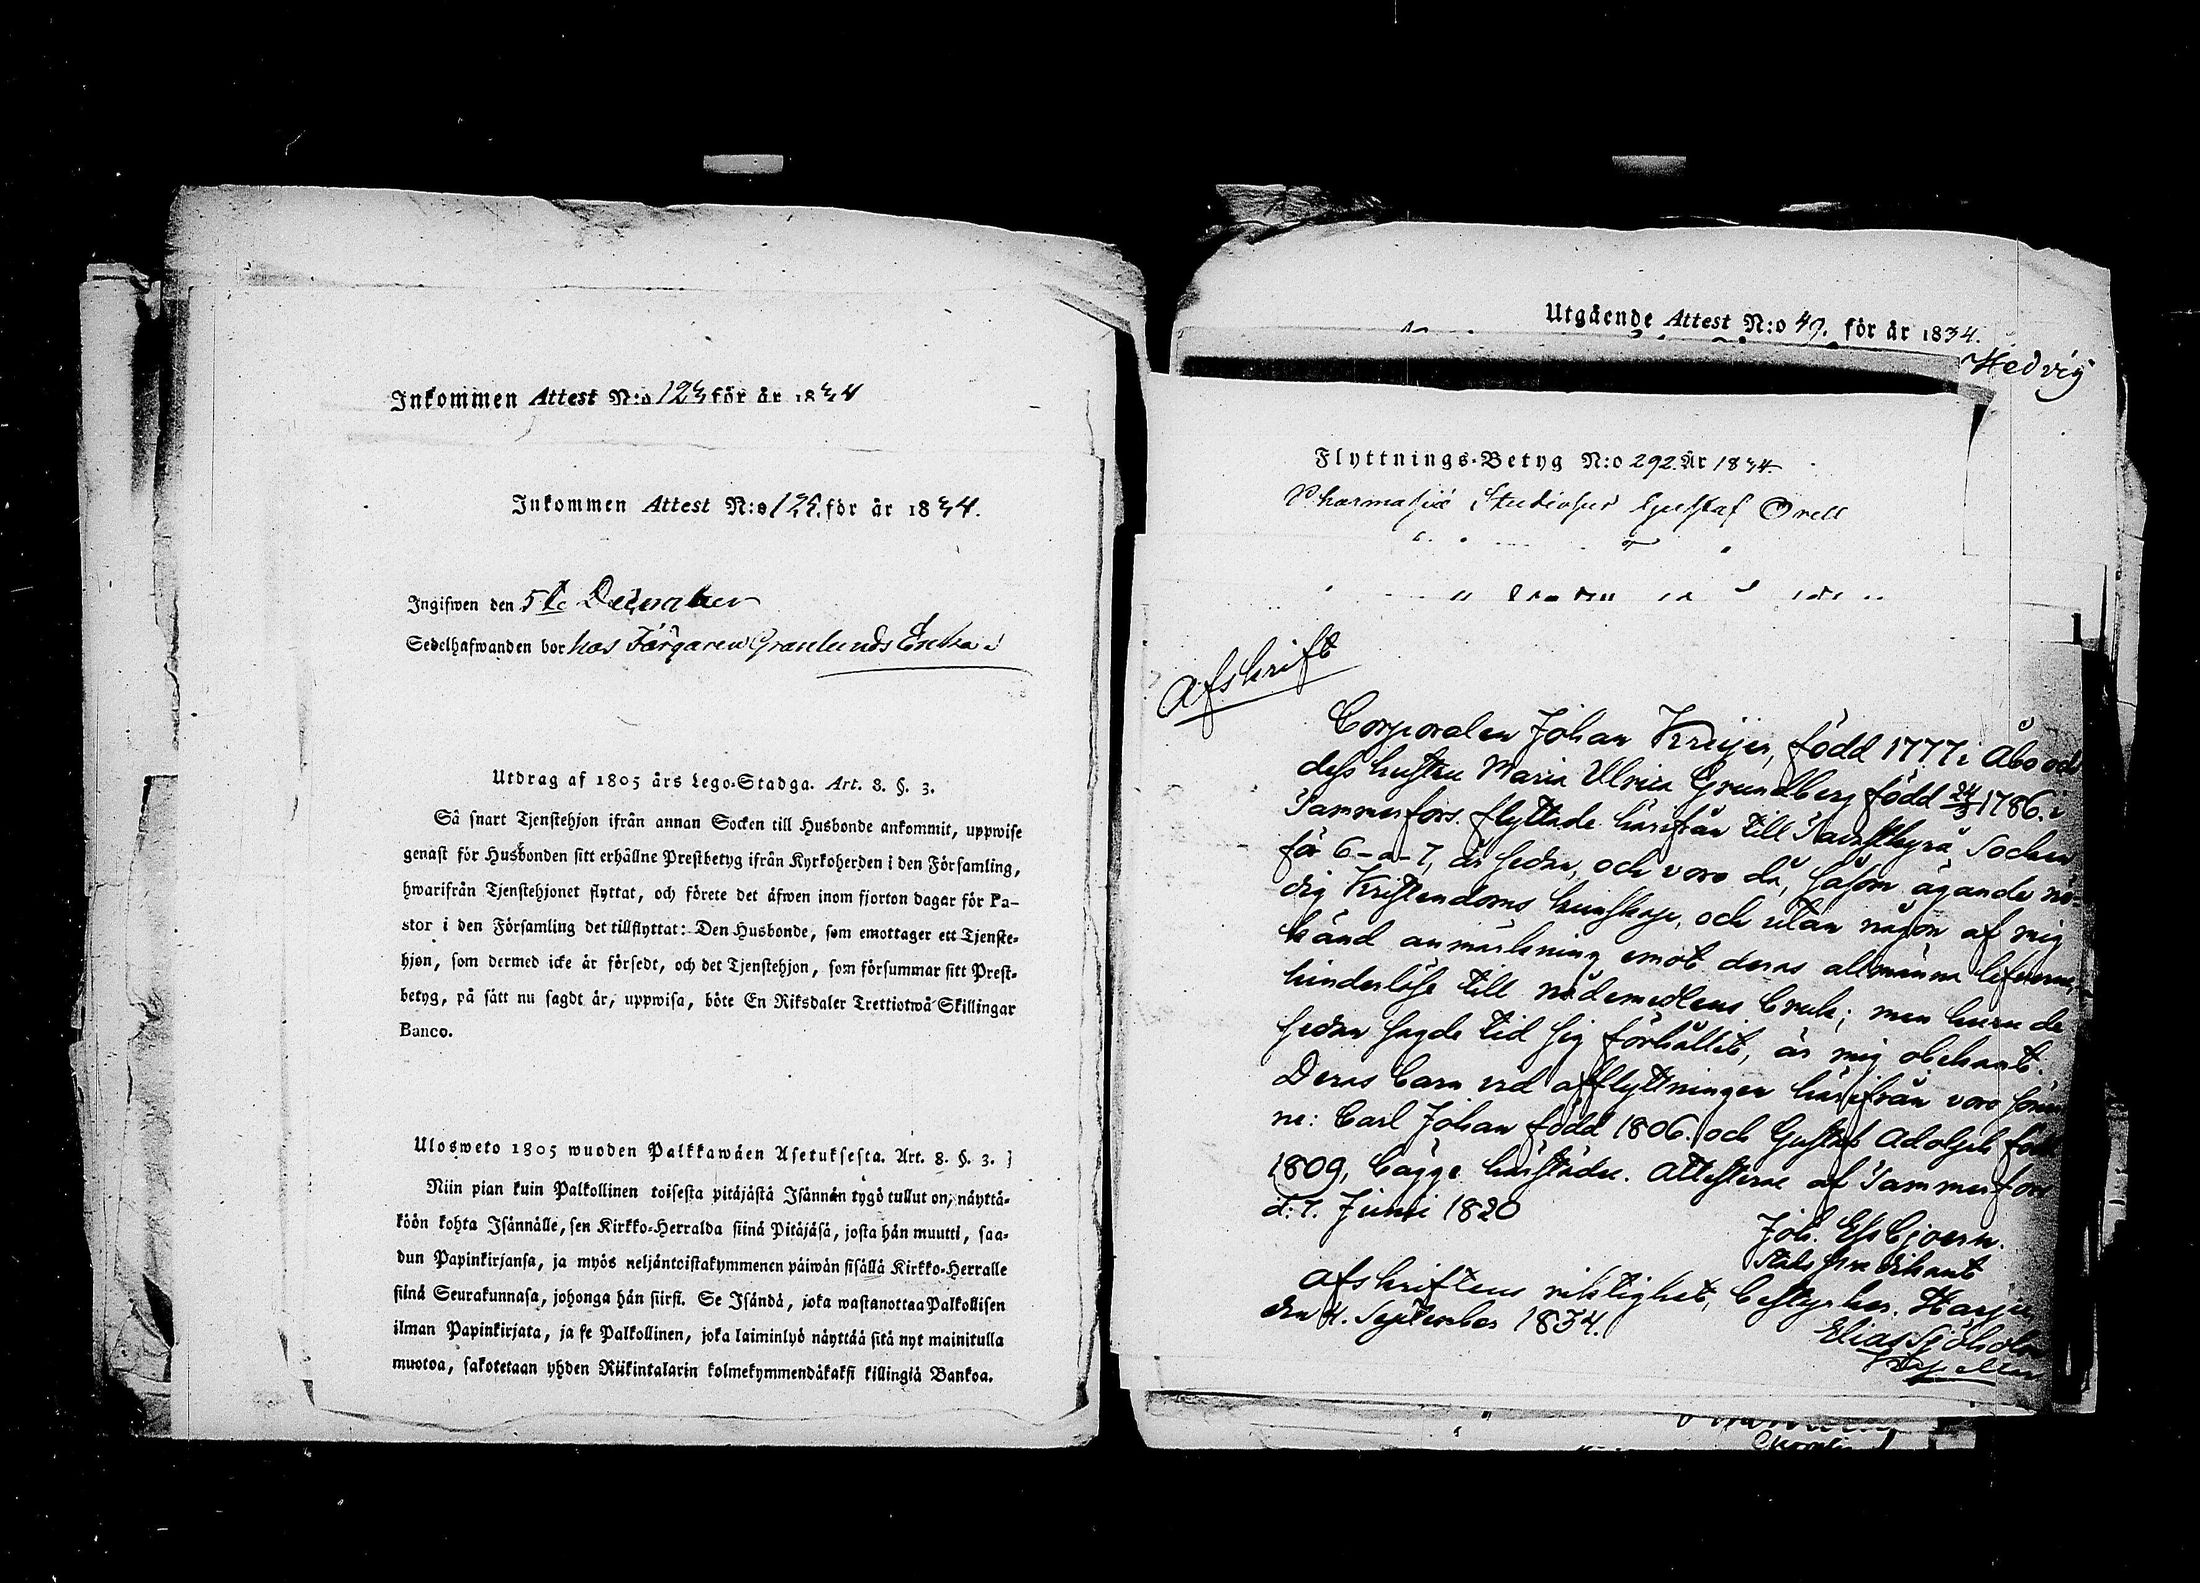 Inkommen Attest N:o 123 för år 1834
Inkommen Attest N:o 125. för år 1834.
Ingifwen den 5te December
Sedelhafwanden bor hos Färgaren Granlunds Enka i
Utdrag af 1805 års Lego-Stadga. Art. 8. §. 3.
Så snart Tjenstehjon ifrån annan Socken till Husbonde ankommit, uppwise
genast för Husbonden sitt erhållne Prestbetyg ifrån Kyrkoherden i den Församling,
hwarifrån Tjenstehjonet flyttat, och förete det äfwen inom fjorton dagar för Pa-
stor i den Församling det tillflyttat: Den Husbonde, som emottager ett Tjenste-
hjon, som dermed icke är försedt, och det Tjenstehjon, som försummar sitt Prest-
betyg, på sätt nu sagdt är, uppwisa, böte En Riksdaler Trettiotwå Skillingar
Banco.
Ulosweto 1805 wuoden Palkkawäen Asetuksesta. Art. 8. §. 3.
Niin pian kuin Palkollinen toisesta pitäjästä Isännän tygö tullut on, näyttä-
köön kohta Isännälle, sen Kirkko-Herralda siinä Pitäjäsä, josta hän muutti, saa-
dun Papinkirjansa, ja myös neljäntoistakymmenen päiwän sisällä Kirkko-Herralle
siinä Seurakunnasa, johonga hän siirsi. Se Isändä, joka wastanottaa Palkollisen
ilman Papinkirjata, ja se Palkollinen, joka laiminlyö näyttää sitä nyt mainitulla
muotoa, sakotetaan yhden Riikintalarin kolmekymmendäkaksi killingiä Bankoa.
Utgående Attest N:o 49. för år 1834.
Hedvig
Flyttnings-Betyg N:o 292. År 1834
Pharmasiæ Studiosus Gustaf Orell
Afskrift
Corporalen Johan Kreijer, född 1777 i Åbo och
dess hustru Maria Ulrica Grundberg född 24/3 1786. i
Tammerfors. flyttade härifrån till Tavastkyrå Socken
för 6-a-7, år sedan, och voro då, såsom ägande nö-
dig Kristendoms kunskap, och utan någon af mig
känd anmärkning emot deras allmänna lefverne,
hinderlöse till nådemedlens bruk; men huru de
sedan sagde tid sig förhållit, är mig obekant.
Deras barn vid afflyttningen härifrån voro söner-
ne: Carl Johan född 1806. och Gustaf Adolph född
1809, bägge härstädes. Attesterar af Tammerfors
d. 7. Junii 1820
Joh. Essbjoern.
Stads predikant
Afskriftens riktighet, bestyrker. Harju
den 4. September 1834.
Elias Sjöholm